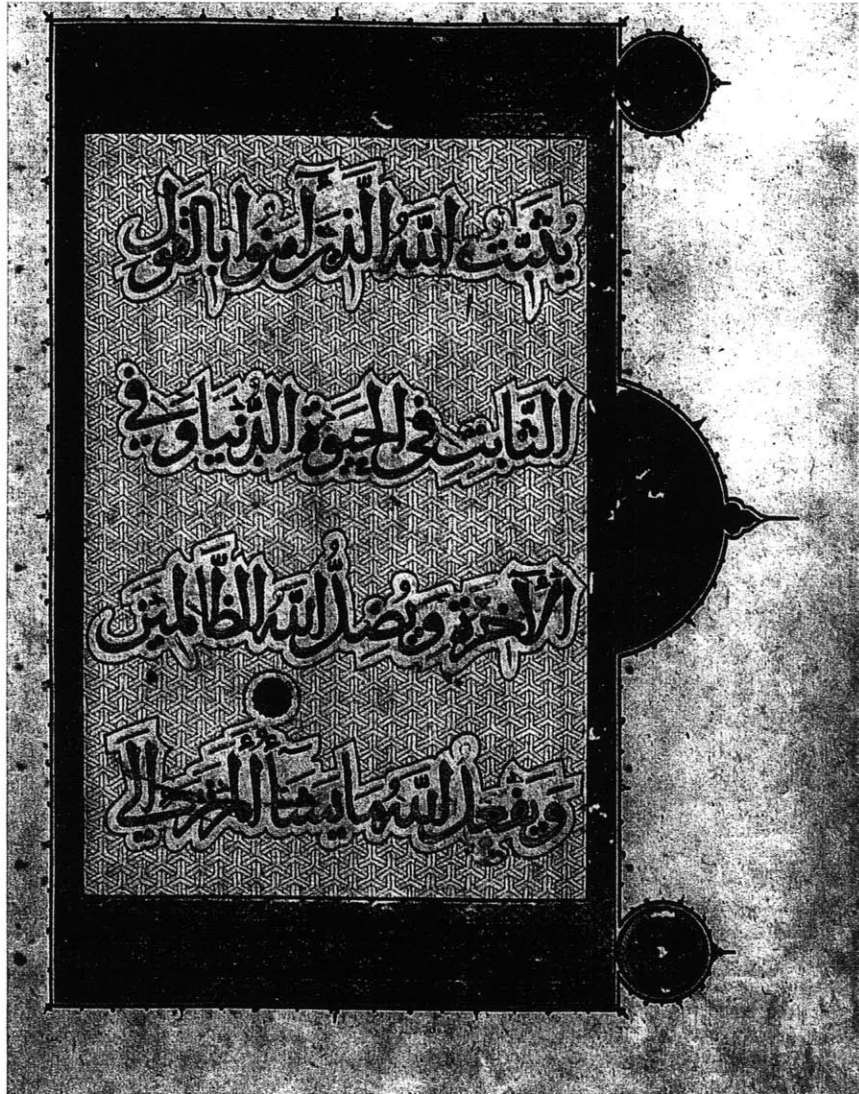 يُثَبِّتُ اللَّهُ الَّذِينَ آمَنُوا بِالْقَوْلِ
الثَّابِتِ فِي الْحَيَوٰةِ الدُّنْيَا وَفِي
الْآخِرَةِ وَيُضِلُّ اللَّهُ الظَّالِمِينَ
وَيَفْعَلُ اللَّهُ مَا يَشَآءُ أَلَمْ تَرَ إِلَى